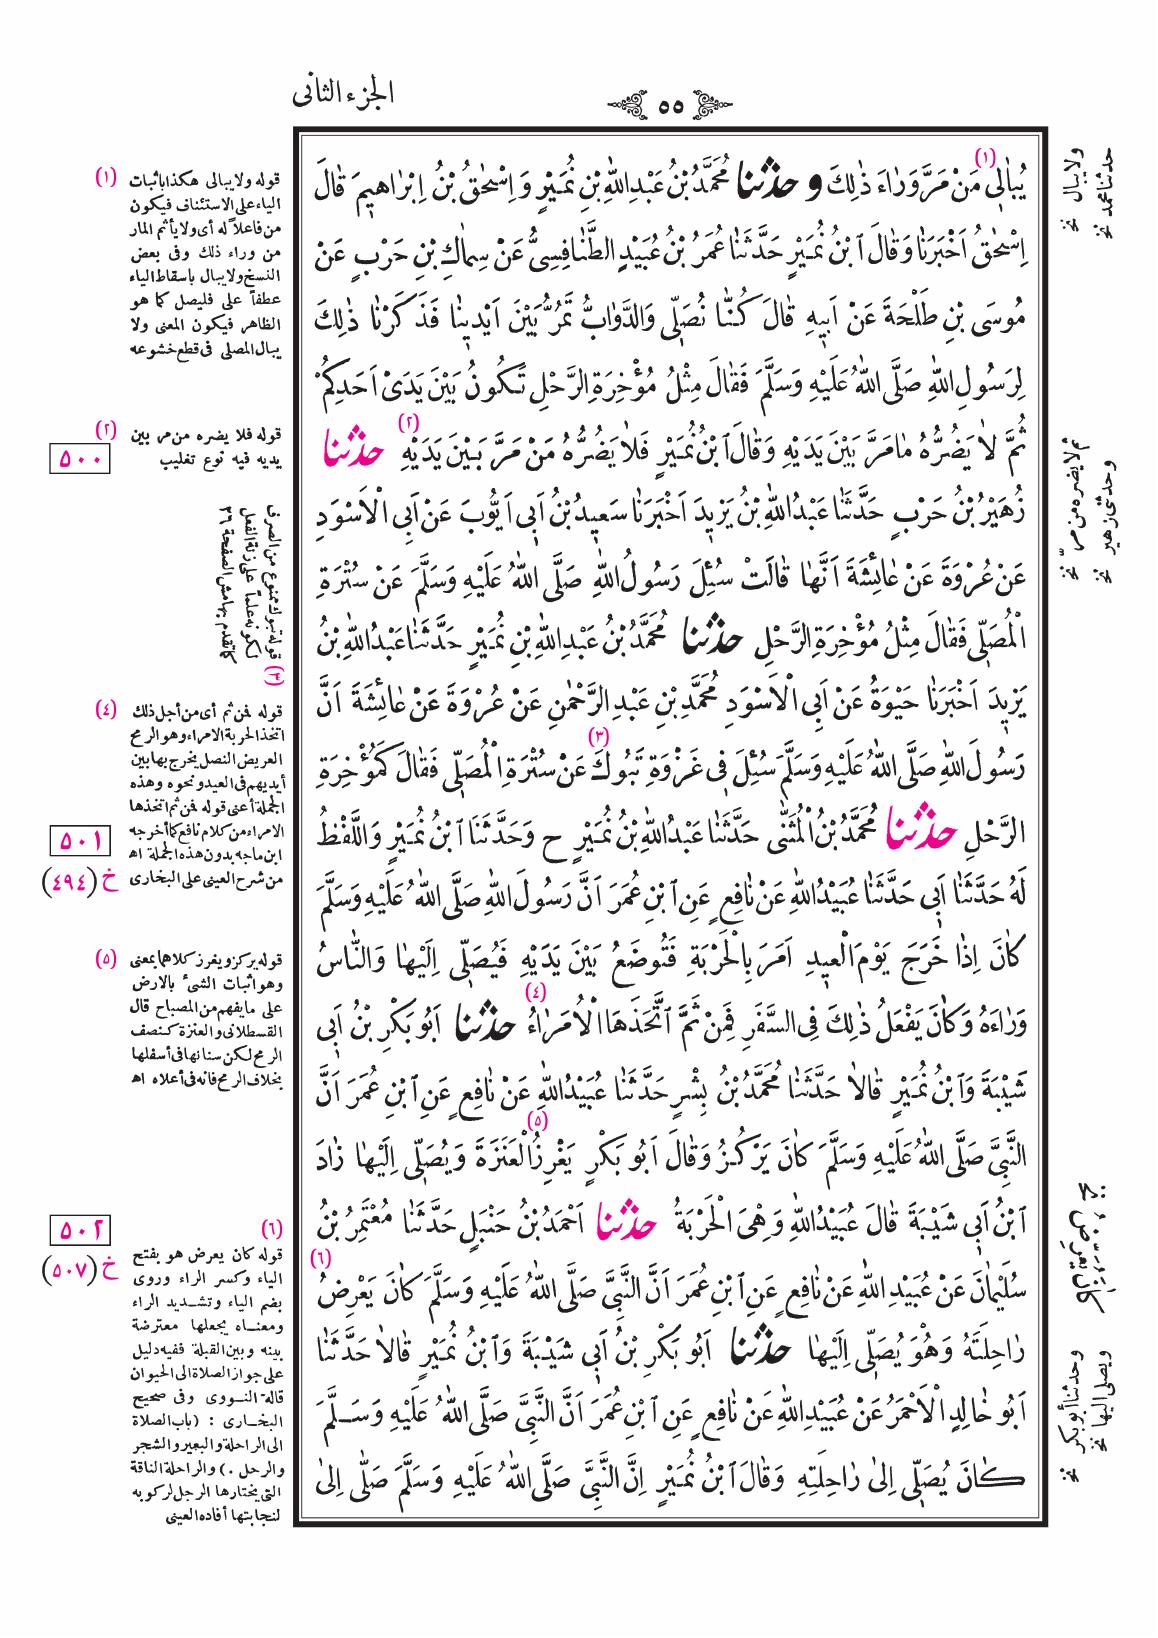 الجزء الثانى
٥٥
يُبَالِى (١) مَنْ مَرَّ وَرَاءَ ذٰلِكَ وحدثنا مُحَمَّدُ بْنُ عَبْدِاللهِ بْنِ نُمَيْرٍ وَإِسْحٰقُ بْنُ إِبْرَاهِيمَ قَالَ
إِسْحٰقُ أَخْبَرَنَا وَقَالَ ابْنُ نُمَيْرٍ حَدَّثَنَا عُمَرُ بْنُ عُبَيْدٍ الطَّنَافِسِىُّ عَنْ سِمَاكِ بْنِ حَرْبٍ عَنْ
مُوسَى بْنِ طَلْحَةَ عَنْ أَبِيهِ قَالَ كُنَّا نُصَلِّى وَالدَّوَابُّ تَمُرُّ بَيْنَ أَيْدِينَا فَذَكَرْنَا ذٰلِكَ
لِرَسُولِ اللهِ صَلَّى اللهُ عَلَيْهِ وَسَلَّمَ فَقَالَ مِثْلُ مُؤْخِرَةِ الرَّحْلِ تَكُونُ بَيْنَ يَدَىْ أَحَدِكُمْ
ثُمَّ لَا يَضُرُّهُ مَا مَرَّ بَيْنَ يَدَيْهِ وَقَالَ ابْنُ نُمَيْرٍ فَلَا يَضُرُّهُ مَنْ مَرَّ بَيْنَ يَدَيْهِ (٢) حدثنا
زُهَيْرُ بْنُ حَرْبٍ حَدَّثَنَا عَبْدُاللهِ بْنُ يَزِيدَ أَخْبَرَنَا سَعِيدُ بْنُ أَبِى أَيُّوبَ عَنْ أَبِى الْأَسْوَدِ
عَنْ عُرْوَةَ عَنْ عَائِشَةَ أَنَّهَا قَالَتْ سُئِلَ رَسُولُ اللهِ صَلَّى اللهُ عَلَيْهِ وَسَلَّمَ عَنْ سُتْرَةِ
الْمُصَلِّى فَقَالَ مِثْلُ مُؤْخِرَةِ الرَّحْلِ حدثنا مُحَمَّدُ بْنُ عَبْدِاللهِ بْنِ نُمَيْرٍ حَدَّثَنَا عَبْدُاللهِ بْنُ
يَزِيدَ أَخْبَرَنَا حَيْوَةُ عَنْ أَبِى الْأَسْوَدِ مُحَمَّدِ بْنِ عَبْدِ الرَّحْمٰنِ عَنْ عُرْوَةَ عَنْ عَائِشَةَ أَنَّ
رَسُولَ اللهِ صَلَّى اللهُ عَلَيْهِ وَسَلَّمَ سُئِلَ فِى غَزْوَةِ تَبُوكَ (٣) عَنْ سُتْرَةِ الْمُصَلِّى فَقَالَ كَمُؤْخِرَةِ
الرَّحْلِ حدثنا مُحَمَّدُ بْنُ الْمُثَنَّى حَدَّثَنَا عَبْدُاللهِ بْنُ نُمَيْرٍ ح وَحَدَّثَنَا ابْنُ نُمَيْرٍ وَاللَّفْظُ
لَهُ حَدَّثَنَا أَبِى حَدَّثَنَا عُبَيْدُاللهِ عَنْ نَافِعٍ عَنِ ابْنِ عُمَرَ أَنَّ رَسُولَ اللهِ صَلَّى اللهُ عَلَيْهِ وَسَلَّمَ
كَانَ إِذَا خَرَجَ يَوْمَ الْعِيدِ أَمَرَ بِالْحَرْبَةِ فَتُوضَعُ بَيْنَ يَدَيْهِ فَيُصَلِّى إِلَيْهَا وَالنَّاسُ
وَرَاءَهُ وَكَانَ يَفْعَلُ ذٰلِكَ فِى السَّفَرِ فَمِنْ ثَمَّ اتَّخَذَهَا الْأُمَرَاءُ (٤) حدثنا أَبُو بَكْرِ بْنُ أَبِى
شَيْبَةَ وَابْنُ نُمَيْرٍ قَالَا حَدَّثَنَا مُحَمَّدُ بْنُ بِشْرٍ حَدَّثَنَا عُبَيْدُاللهِ عَنْ نَافِعٍ عَنِ ابْنِ عُمَرَ أَنَّ
النَّبِىَّ صَلَّى اللهُ عَلَيْهِ وَسَلَّمَ كَانَ يَرْكُزُ وَقَالَ أَبُو بَكْرٍ يَغْرِزُ (٥) الْعَنَزَةَ وَيُصَلِّى إِلَيْهَا زَادَ
ابْنُ أَبِى شَيْبَةَ قَالَ عُبَيْدُاللهِ وَهْىَ الْحَرْبَةُ حدثنا أَحْمَدُ بْنُ حَنْبَلٍ حَدَّثَنَا مُعْتَمِرُ بْنُ
سُلَيْمَانَ عَنْ عُبَيْدِ اللهِ عَنْ نَافِعٍ عَنِ ابْنِ عُمَرَ أَنَّ النَّبِىَّ صَلَّى اللهُ عَلَيْهِ وَسَلَّمَ كَانَ يَعْرِضُ (٦)
رَاحِلَتَهُ وَهْوَ يُصَلِّى إِلَيْهَا حدثنا أَبُو بَكْرِ بْنُ أَبِى شَيْبَةَ وَابْنُ نُمَيْرٍ قَالَا حَدَّثَنَا
أَبُو خَالِدٍ الْأَحْمَرُ عَنْ عُبَيْدِاللهِ عَنْ نَافِعٍ عَنِ ابْنِ عُمَرَ أَنَّ النَّبِىَّ صَلَّى اللهُ عَلَيْهِ وَسَلَّمَ
كَانَ يُصَلِّى إِلَىٰ رَاحِلَتِهِ وَقَالَ ابْنُ نُمَيْرٍ إِنَّ النَّبِىَّ صَلَّى اللهُ عَلَيْهِ وَسَلَّمَ صَلَّى إِلَىٰ
حدثنا محمد نخ
ولا يبال نخ
وحدثنى زهير نخ
ثم لا يضره من مرّ نخ
كان يُعَرِّضُ نخ
ويصلى اليها نخ
وحدثنا أبو بكر نخ
(١) قوله ولا يبالى هكذا باثبات
الياء على الاستئناف فيكون
من فاعلاً له أى ولا يأثم المار
من وراء ذلك وفى بعض
النسخ ولا يبال باسقاط الياء
عطفاً على فليصل كما هو
الظاهر فيكون المعنى ولا
يبال المصلى فى قطع خشوعه
(٢) قوله فلا يضره من مر بين
يديه فيه نوع تغليب
٥٠٠
(٣) قوله تبوك ممنوع من الصرف
لكونه علماً على زنة الفعل
كما تقدم بهامش الصفحة ٣٦
(٤) قوله فمن ثم أى من أجل ذلك
اتخذ الحربة الامراء وهو الرمح
العريض النصل يخرج بها بين
أيديهم فى العيد ونحوه وهذه
الجملة أعنى قوله فمن ثم اتخذها
الامراء من كلام نافع كما أخرجه
ابن ماجه بدون هذه الجملة اه
من شرح العينى على البخارى
٥٠١
خ (٤٩٤)
(٥) قوله يركز ويغرز كلاهما بمعنى
وهو اثبات الشئ بالارض
على ما يفهم من المصباح قال
القسطلانى والعنزة كنصف
الرمح لكن سنانها فى أسفلها
بخلاف الرمح فانه فى أعلاه اه
٥٠٢
خ (٥٠٧)
(٦)
قوله كان يعرض هو بفتح
الياء وكسر الراء وروى
بضم الياء وتشديد الراء
ومعناه يجعلها معترضة
بينه وبين القبلة ففيه دليل
على جواز الصلاة الى الحيوان
قاله النووى وفى صحيح
البخارى : (باب الصلاة
الى الراحلة والبعير والشجر
والرحل .) والراحلة الناقة
التى يختارها الرجل لركوبه
لنجابتها أفاده العينى